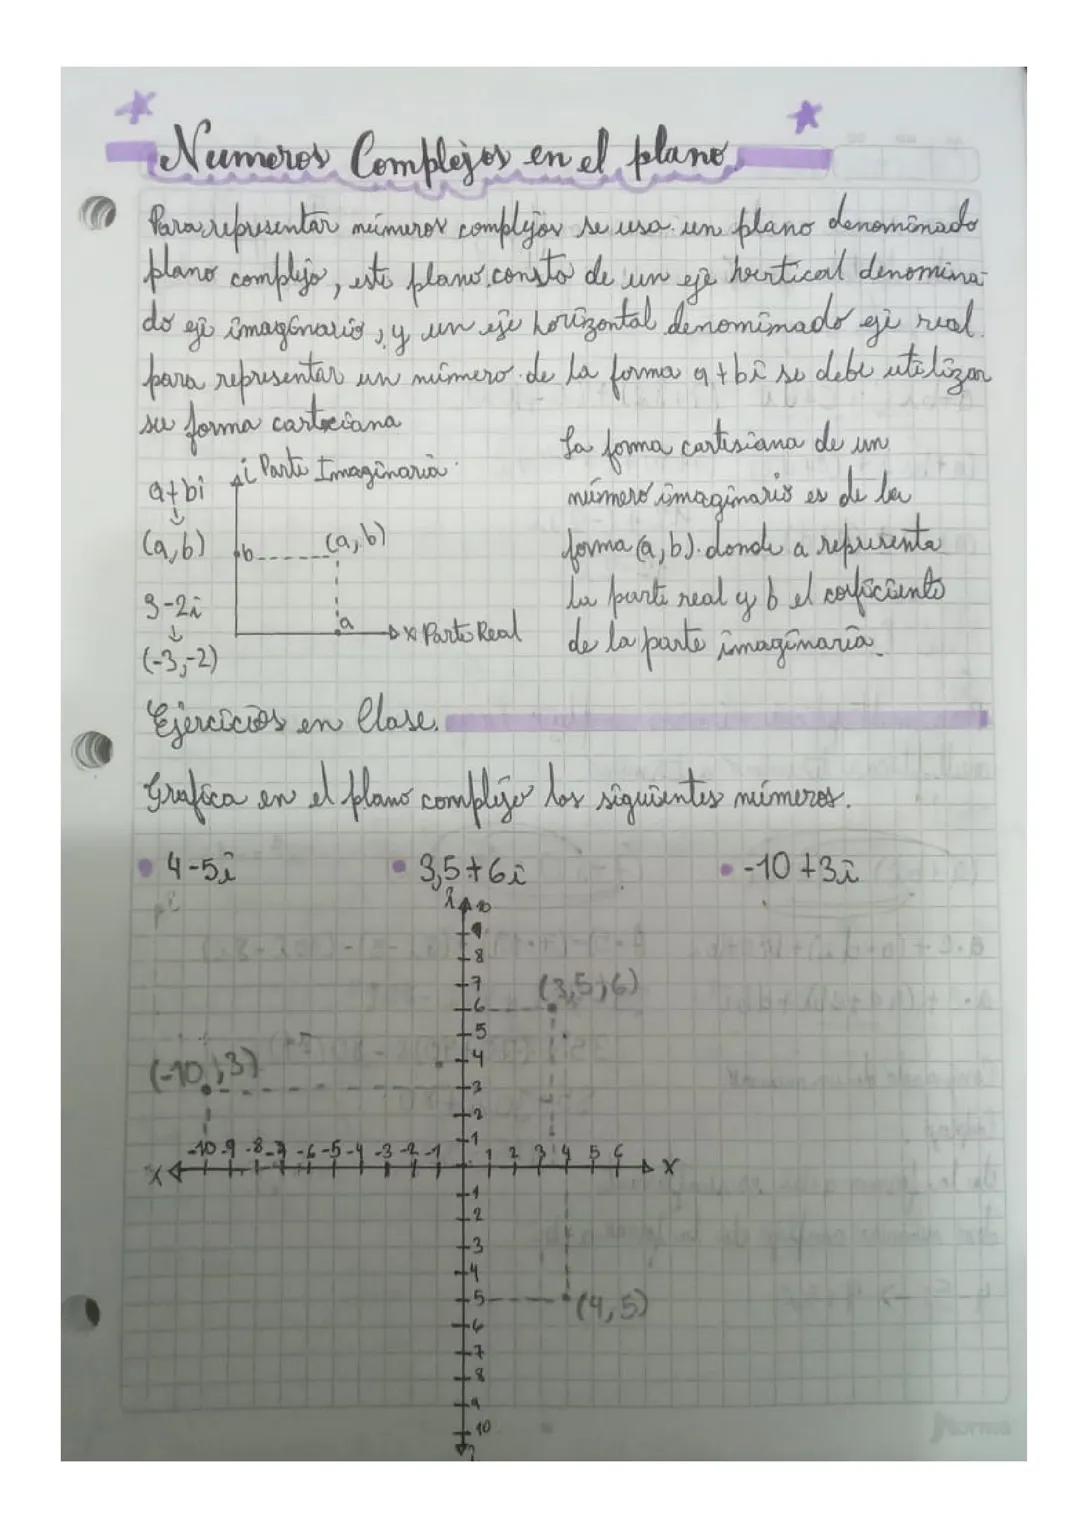 Numeros Complejos en el plano
Para representar números complejos se usa un plano denominado
plano complejo, este plano consta de un eje vertical denomina-
do eje imaginario, y un eje horizontal denominado eje real.
para representar un número de la forma a+bi se debe utilizar
su forma cartesiana
a+bi
(a,b)
3-2i
(-3,-2)
i Parte Imaginaria
b
(a,b)
a
x Parte Real
La forma cartesiana de un
número imaginario es de la
forma (a,b). donde a representa
la parte real y b el coeficiente
de la parte imaginaria.
Ejercicios en Clase.
Grafica en el plano complejo los siguientes números.
4-5i
3,5+6i
-10+3i
i
10
9
8
7
6
5
4
3
2
1
(3,5;6)
(-10,3)
-10 -9 -8 -7 -6 -5 -4 -3 -2 -1 1 2 3 4 5 6
X X
-1
-2
-3
-4
-5
-6
-7
-8
-9
-10
(4,5)
Norma